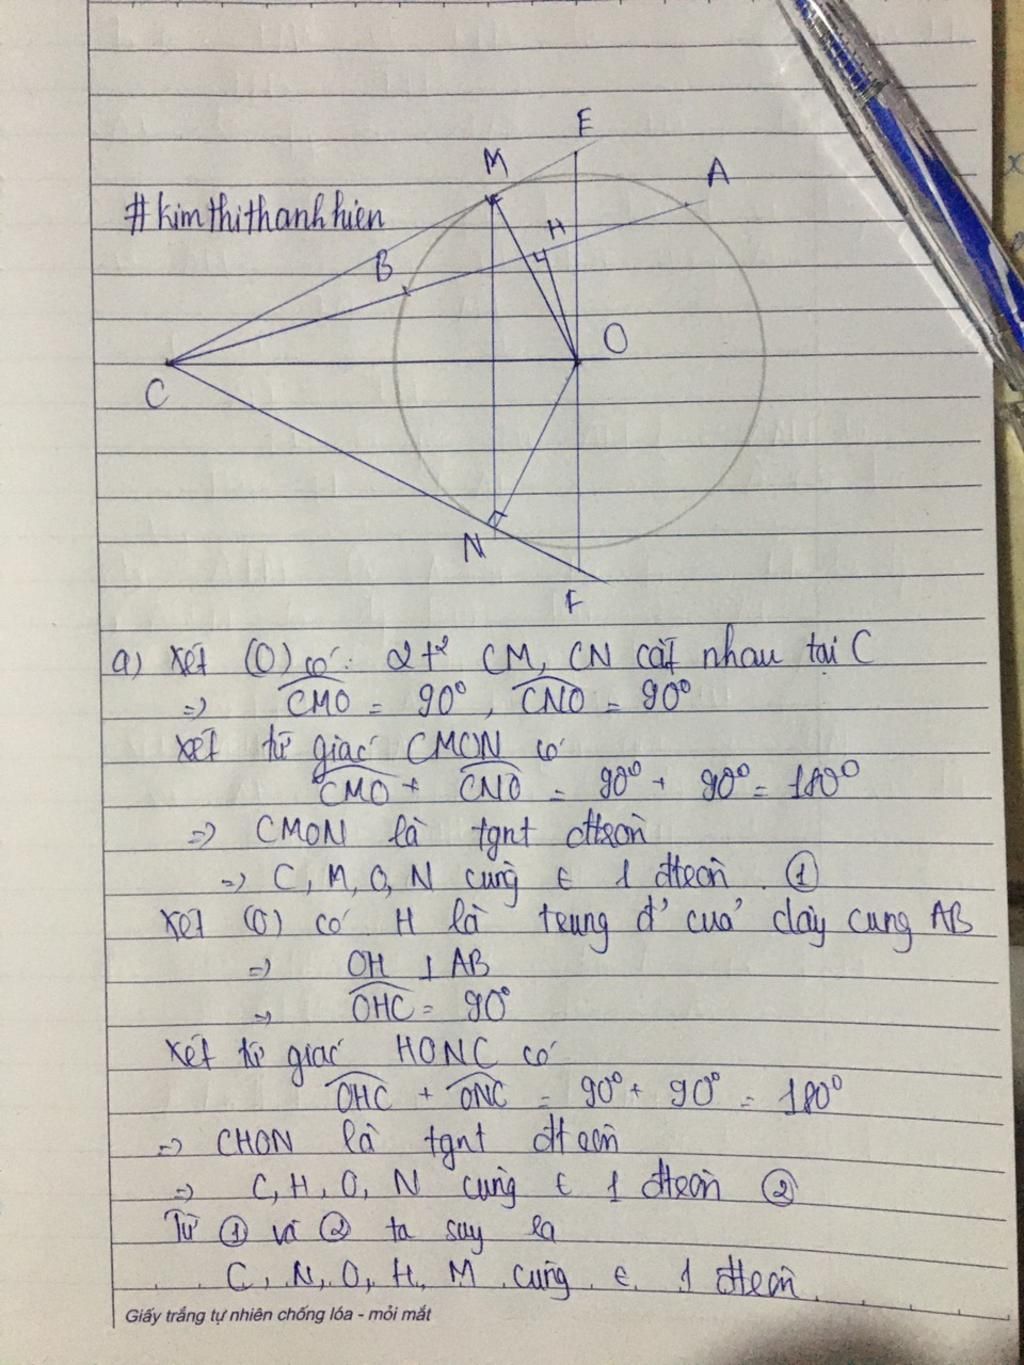 E
M
A
#kimthithanhhien
H
B
O
C
N
F
a) Xét (O) có: 2t² CM, CN cắt nhau tại C
=> CMO = 90°, CNO = 90°
Xét tứ giác CMON có
CMO + CNO = 90° + 90° = 180°
=> CMON là tgnt đtròn
=> C, M, O, N cùng ∈ 1 đtròn. ①
Xét (O) có H là trung đ' của dây cung AB
=> OH ⊥ AB
=> OHC = 90°
Xét tứ giác HONC có
OHC + ONC = 90° + 90° = 180°
=> CHON là tgnt đtròn
=> C, H, O, N cùng ∈ 1 đtròn ②
Từ ① và ② ta suy ra
C, N, O, H, M cùng ∈ 1 đtròn
Giấy trắng tự nhiên chống lóa - mỏi mắt